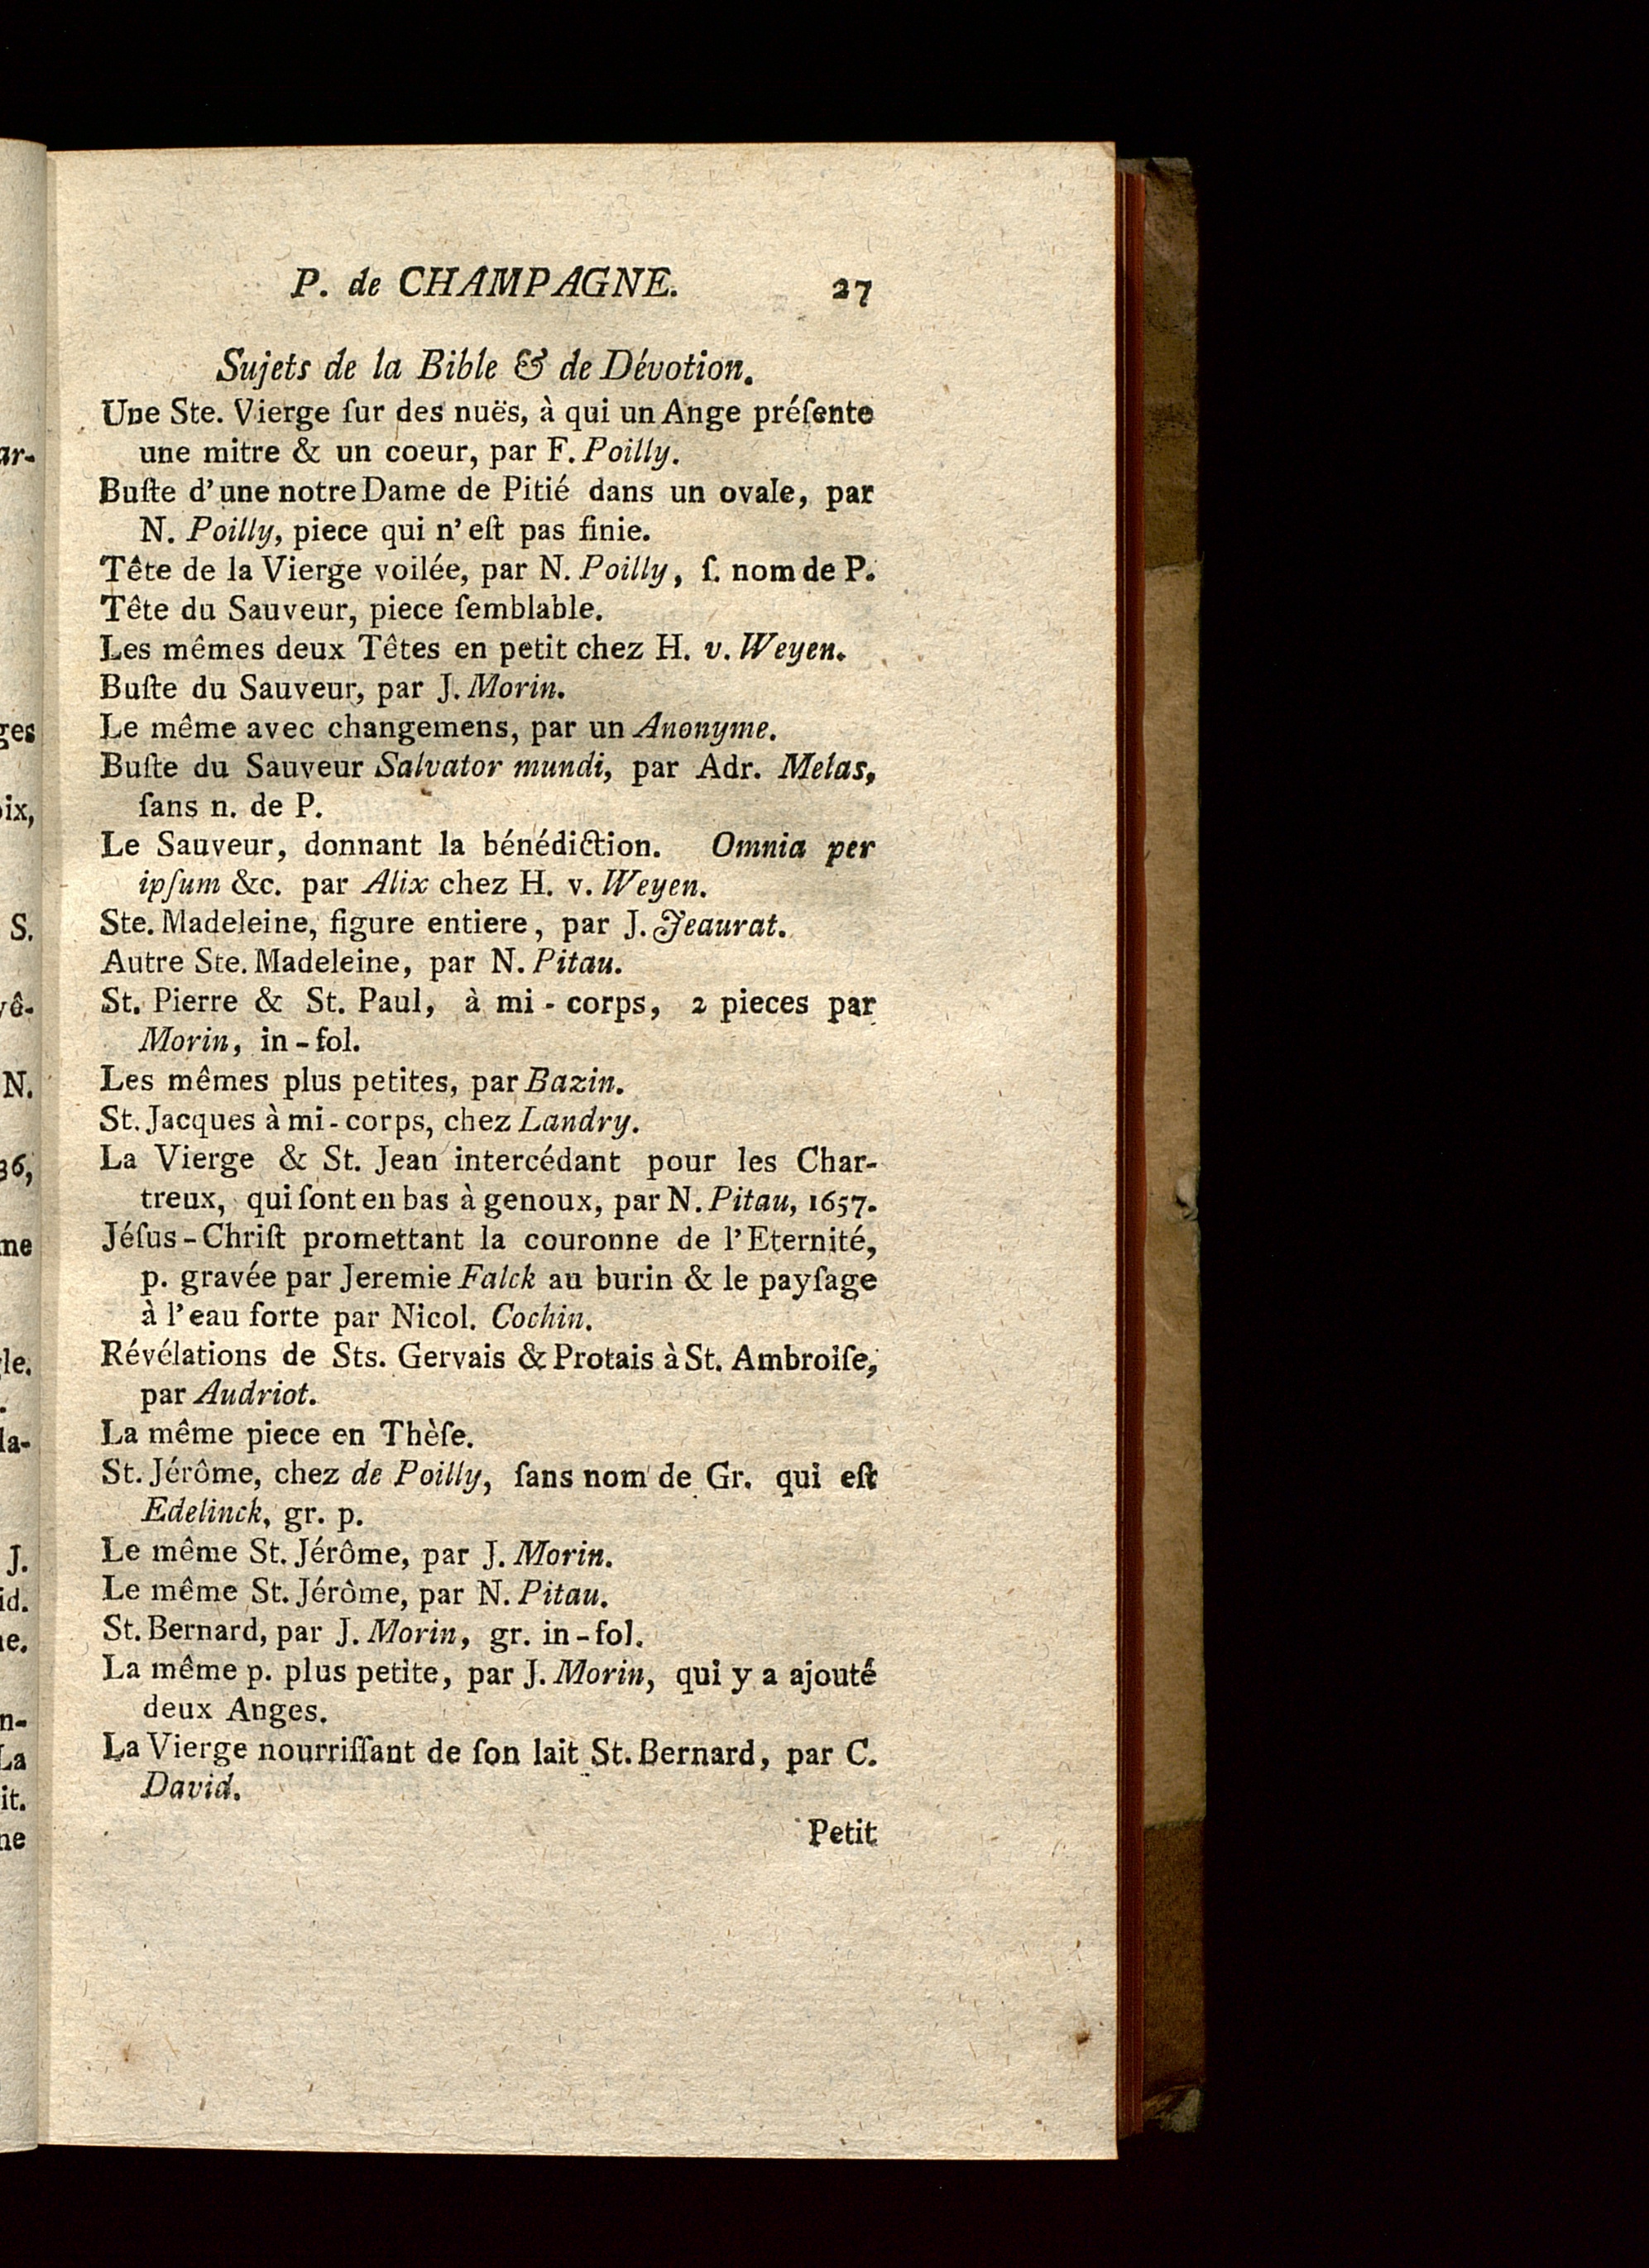 P. de CHAMPAGNE. 27
Sujets de la Bible & de Dévotion.
Une Ste. Vierge ſur des nuës, à qui un Ange préſente
une mitre & un coeur, par F. Poilly.
Buſte d'une notre Dame de Pitié dans un ovale, par
N. Poilly, piece qui n'eſt pas finie.
Tête de la Vierge voilée, par N. Poilly, ſ. nom de P.
Tête du Sauveur, piece ſemblable.
Les mêmes deux Têtes en petit chez H. v. Weyen.
Buſte du Sauveur, par J. Morin.
Le même avec changemens, par un Anonyme.
Buſte du Sauveur Salvator mundi, par Adr. Melas,
ſans n. de P.
Le Sauveur, donnant la bénédiction. Omnia per
ipſum &c. par Alix chez H. v. Weyen.
Ste. Madeleine, figure entiere, par J. Jeaurat.
Autre Ste. Madeleine, par N. Pitau.
St. Pierre & St. Paul, à mi-corps, 2 pieces par
Morin, in-fol.
Les mêmes plus petites, par Bazin.
St. Jacques à mi-corps, chez Landry.
La Vierge & St. Jean intercédant pour les Char-
treux, qui ſont en bas à genoux, par N. Pitau, 1657.
Jéſus-Chriſt promettant la couronne de l'Eternité,
p. gravée par Jeremie Falck au burin & le payſage
à l'eau forte par Nicol. Cochin.
Révélations de Sts. Gervais & Protais à St. Ambroiſe,
par Audriot.
La même piece en Thèſe.
St. Jérôme, chez de Poilly, ſans nom de Gr. qui eſt
Edelinck, gr. p.
Le même St. Jérôme, par J. Morin.
Le même St. Jérôme, par N. Pitau.
St. Bernard, par J. Morin, gr. in-fol.
La même p. plus petite, par J. Morin, qui y a ajouté
deux Anges.
La Vierge nourriſſant de ſon lait St. Bernard, par C.
David.
Petit